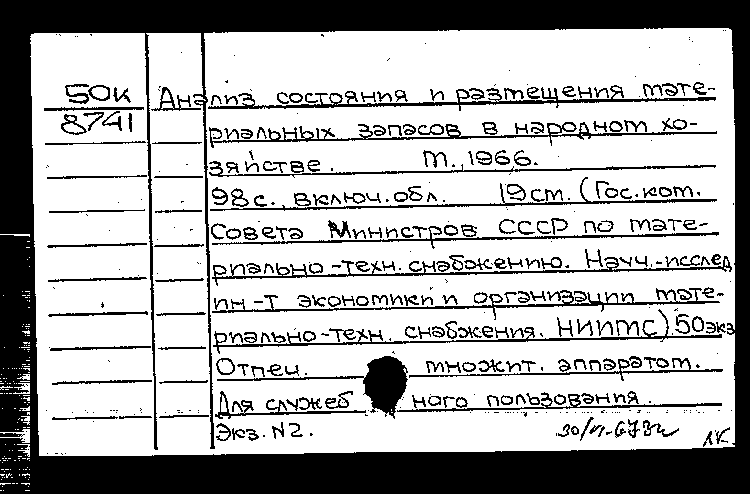 50к Анализ состояния и размещения мате-
8741 риальных запасов в народном хо-
зяйстве. М., 1966.
98 с., включ. обл. 19 см. (Гос. ком.
Совета Министров СССР по мате-
риально-техн. снабжению. Науч.-исслед.
ин-т экономики и организации мате-
риально-техн. снабжения. НИИМС) 50 экз
Отпеч. множит. аппаратом.
Для служебного пользования.
Экз. N2.